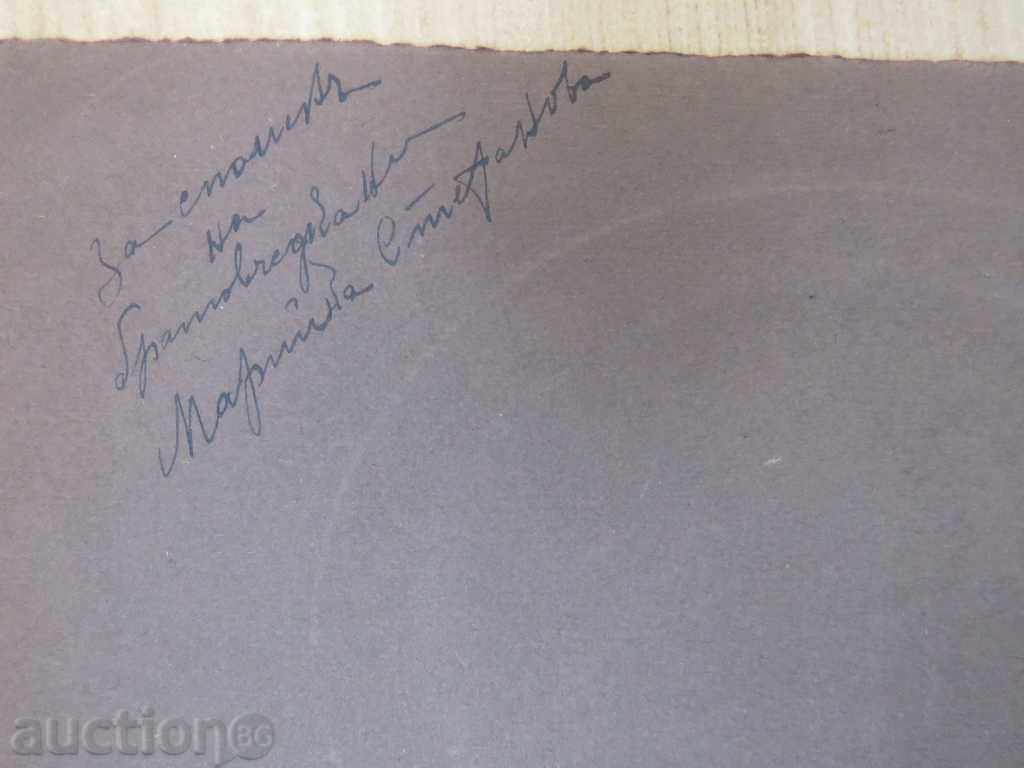 За споменъ
на
братовчедка ни
Марийка Стефанова
auction BG